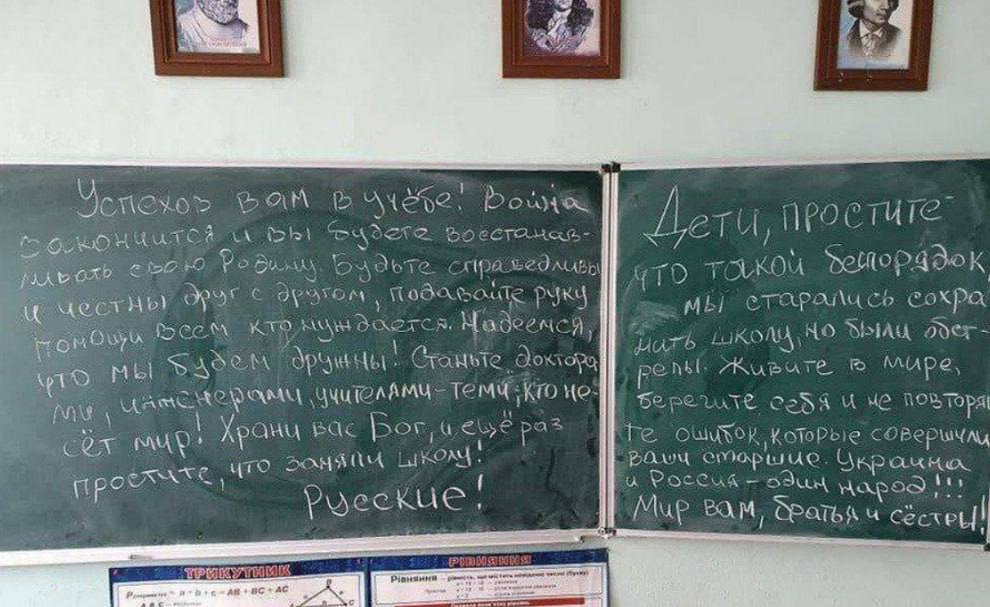 Успехов вам в учёбе! Война
закончится и вы будете восстанав-
ливать свою Родину. Будьте справедливы
и честны друг с другом, подавайте руку
помощи всем кто нуждается. Надеемся,
что мы будем дружны! Станьте доктора-
ми, инженерами, учителями-теми, кто не-
сёт мир! Храни вас Бог, и ещё раз
простите, что заняли школу!
Русские!
Дети, простите
что такой беспорядок,
мы старались сохра
нить школу, но были обст-
релы. Живите в мире,
берегите себя и не повторяй
те ошибок, которые совершили
ваши старшие. Украина
и Россия-один народ!!!
Мир вам, братья и сёстры!
ТРИКУТНИК
a + b + c = AB + BC + AC
РІВНЯННЯ
Рівняння – рівність, що містить невідоме число (букву)